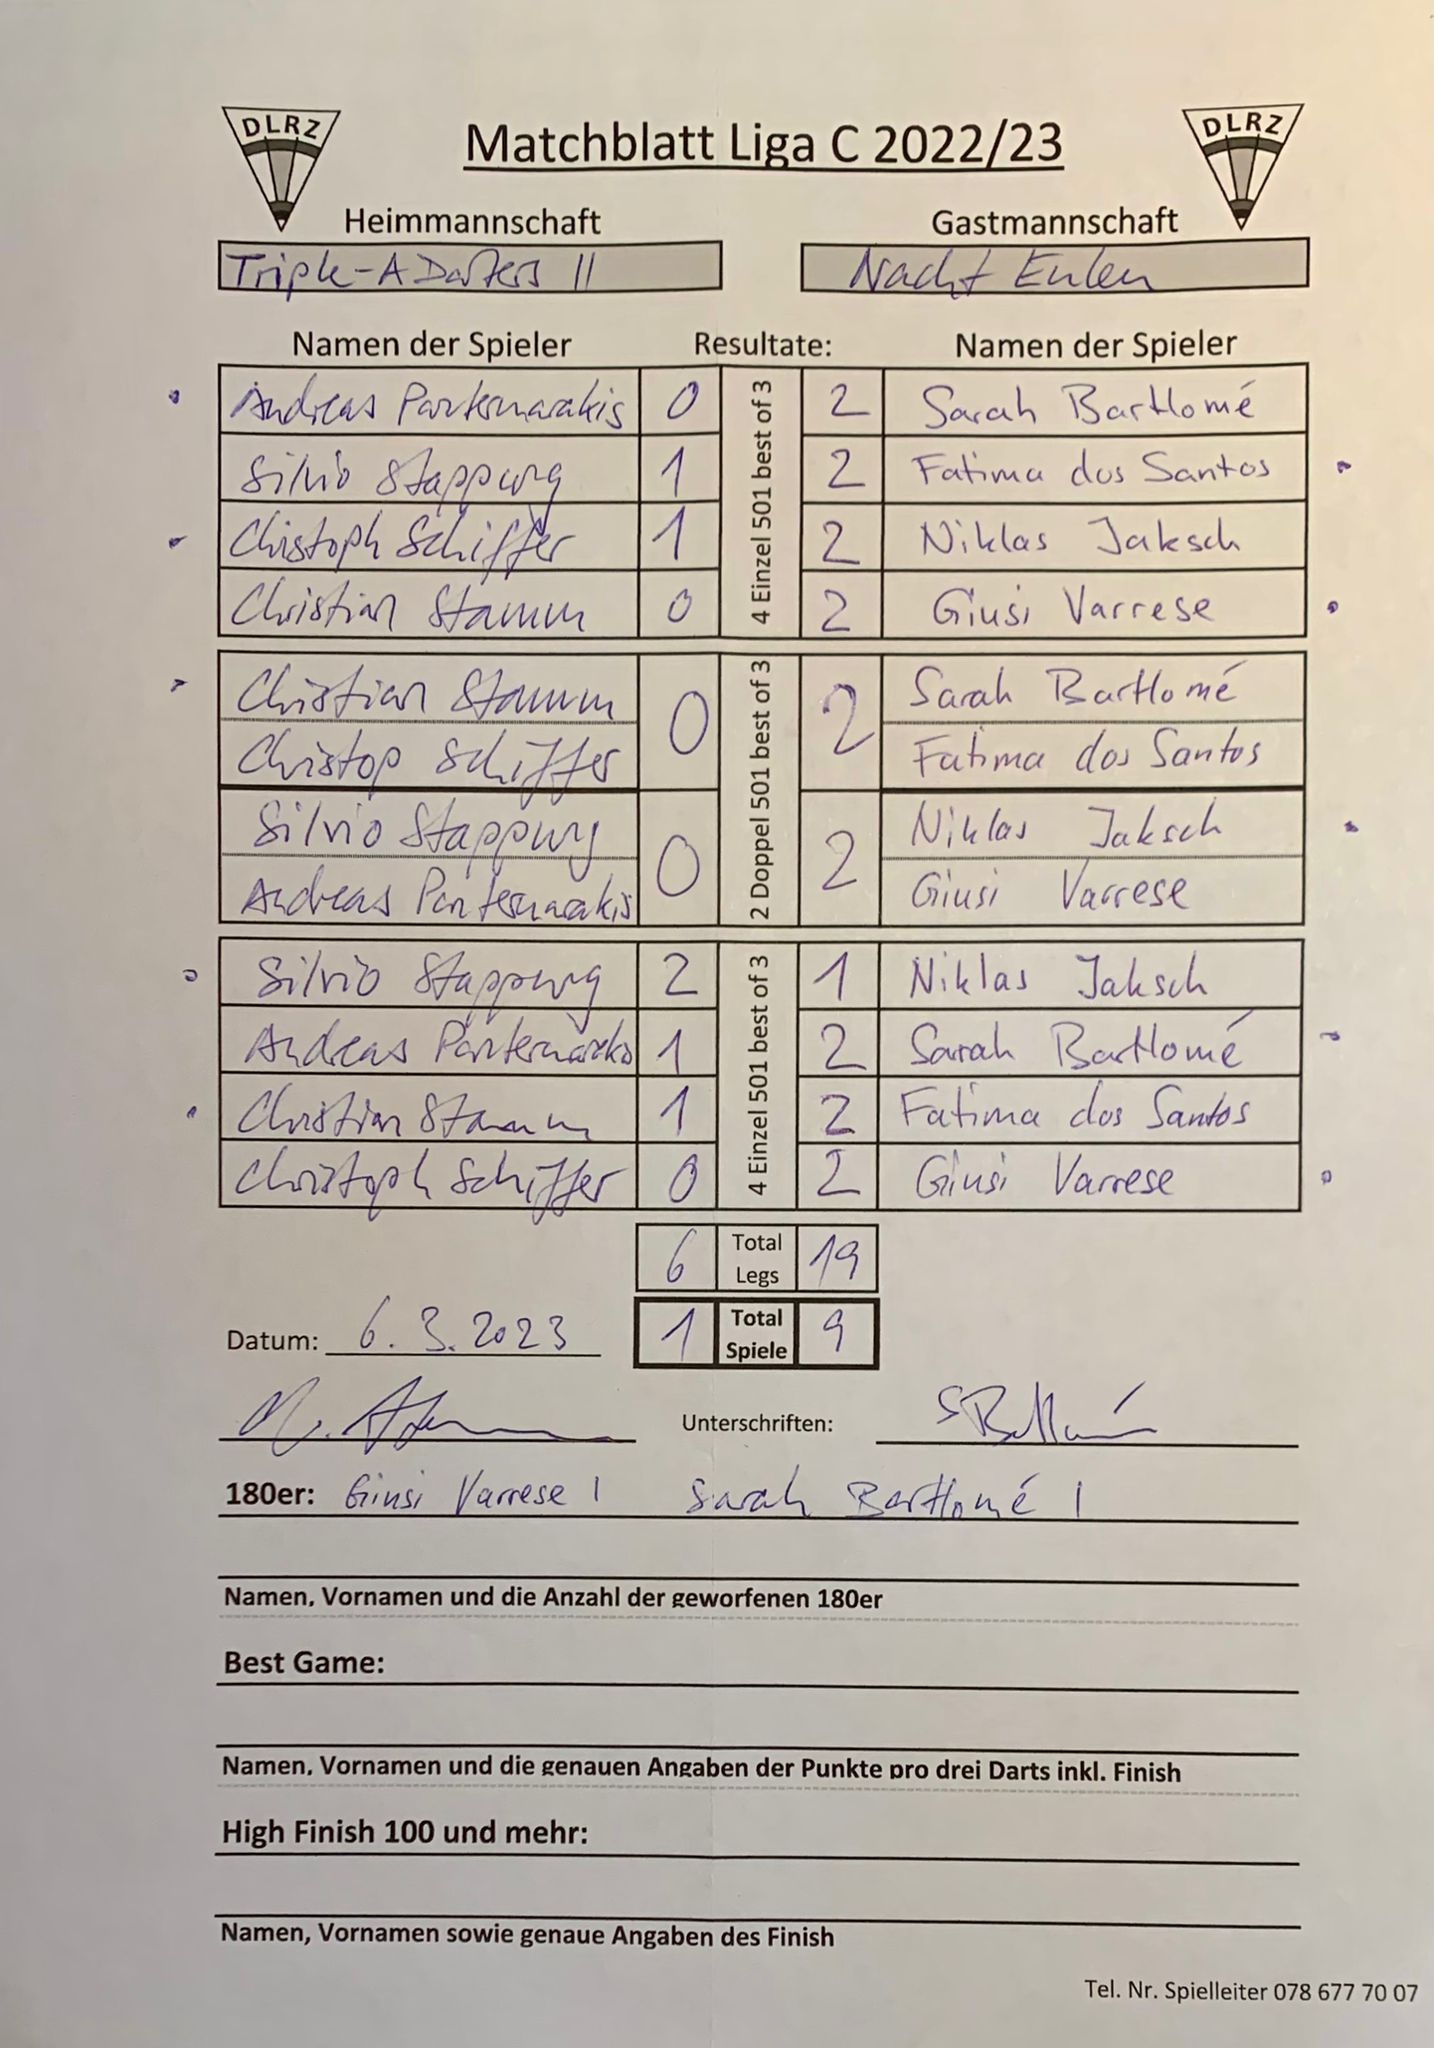 DLRZ Matchblatt Liga C 2022/23 DLRZ
Heimmannschaft Gastmannschaft
Triple-A Darters II Nacht Eulen
Namen der Spieler Resultate: Namen der Spieler
4 Einzel 501 best of 3
Andreas Partenarakis 0 2 Sarah Bartlomé
Silvio Stappung 1 2 Fatima dos Santos
Christoph Schiffer 1 2 Niklas Jaksch
Christian Stamm 0 2 Giusi Varrese
2 Doppel 501 best of 3
Christian Stamm 0 2 Sarah Bartlomé
Christop Schiffer Fatima dos Santos
Silvio Stappung 0 2 Niklas Jaksch
Andreas Giusi Varrese
4 Einzel 501 best of 3
Silvio Stappung 2 1 Niklas Jaksch
Andreas 1 2 Sarah Bartlomé
Christian Stamm 1 2 Fatima dos Santos
Christoph Schiffer 0 2 Giusi Varrese
6 Total Legs 19
Datum: 6.3.2023 1 Total Spiele 9
Unterschriften:
180er: Giusi Varrese 1 Sarah Bartlomé 1
Namen, Vornamen und die Anzahl der geworfenen 180er
Best Game:
Namen, Vornamen und die genauen Angaben der Punkte pro drei Darts inkl. Finish
High Finish 100 und mehr:
Namen, Vornamen sowie genaue Angaben des Finish
Tel. Nr. Spielleiter 078 677 70 07